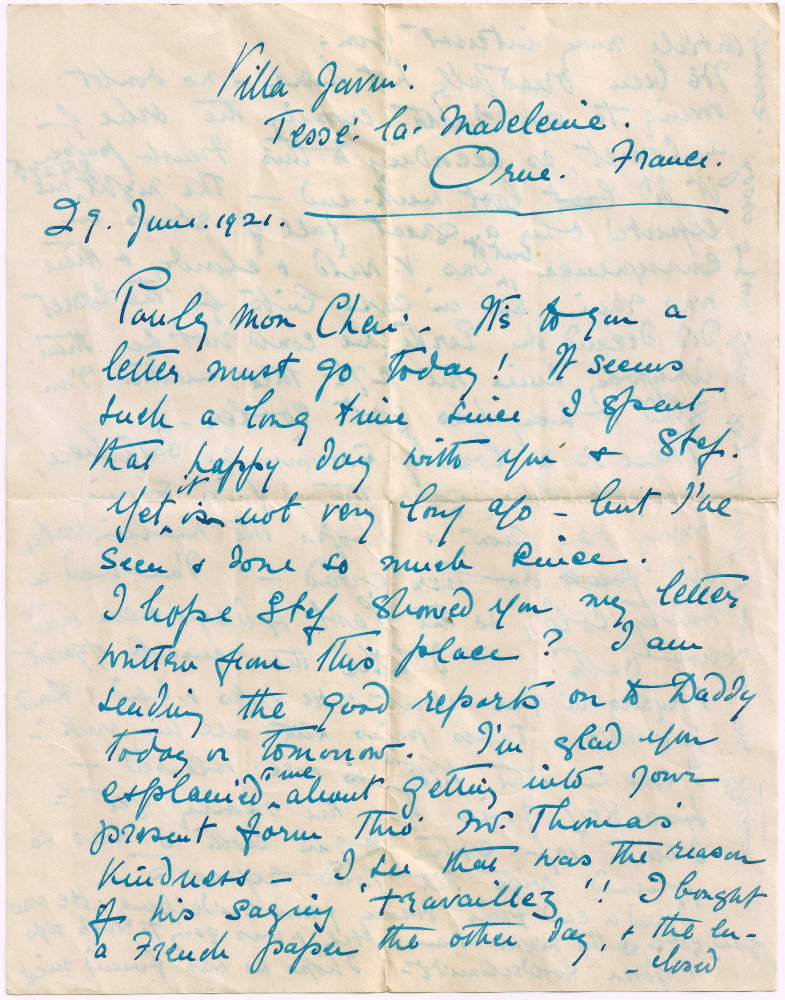 Villa Javin.
Tessé. la. Madeleine.
Orne. France.
29. June. 1921.
Pauly mon Cheri - It's to you a
letter must go today! It seems
such a long time since I spent
that happy day with you & Stef.
Yet it is not very long ago - but I've
seen & done so much since.
I hope Stef showed you my letter
written from this place? I am
sending the good reports on to Daddy
today or tomorrow. I'm glad you
explained to me about getting into your
present form thro' Mr. Thomas'
kindness - I see that was the reason
of his saying 'travaillez'!! I bought
a French paper the other day, & the en-
- closed